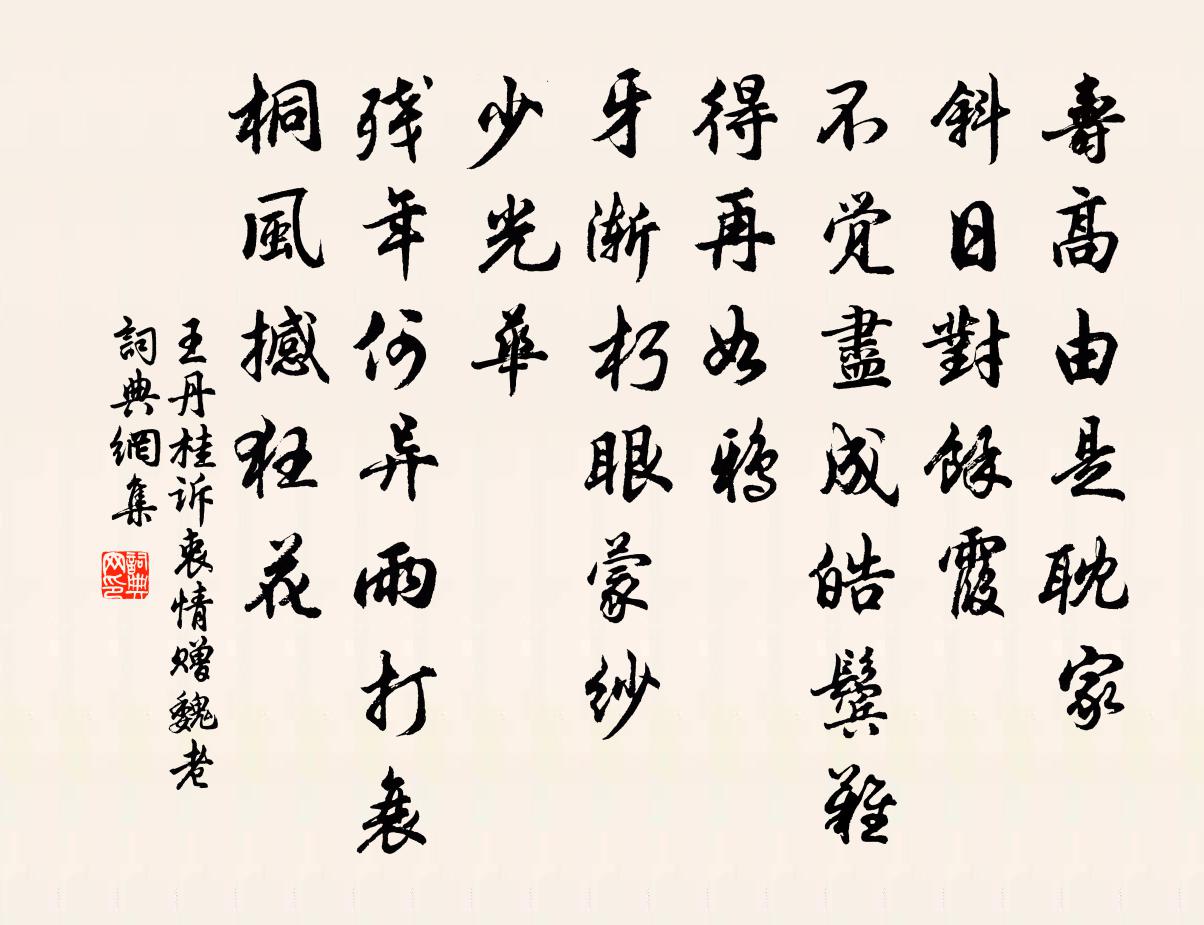 壽高由是耽家
斜日對餘霞
不觉盡成皓鬓難
得再如鸦
牙渐朽眼蒙紗
少光華
残年何异雨打衰
桐風撼狂花
王丹桂诉衷情赠魏老
詞典網集
詞典网印